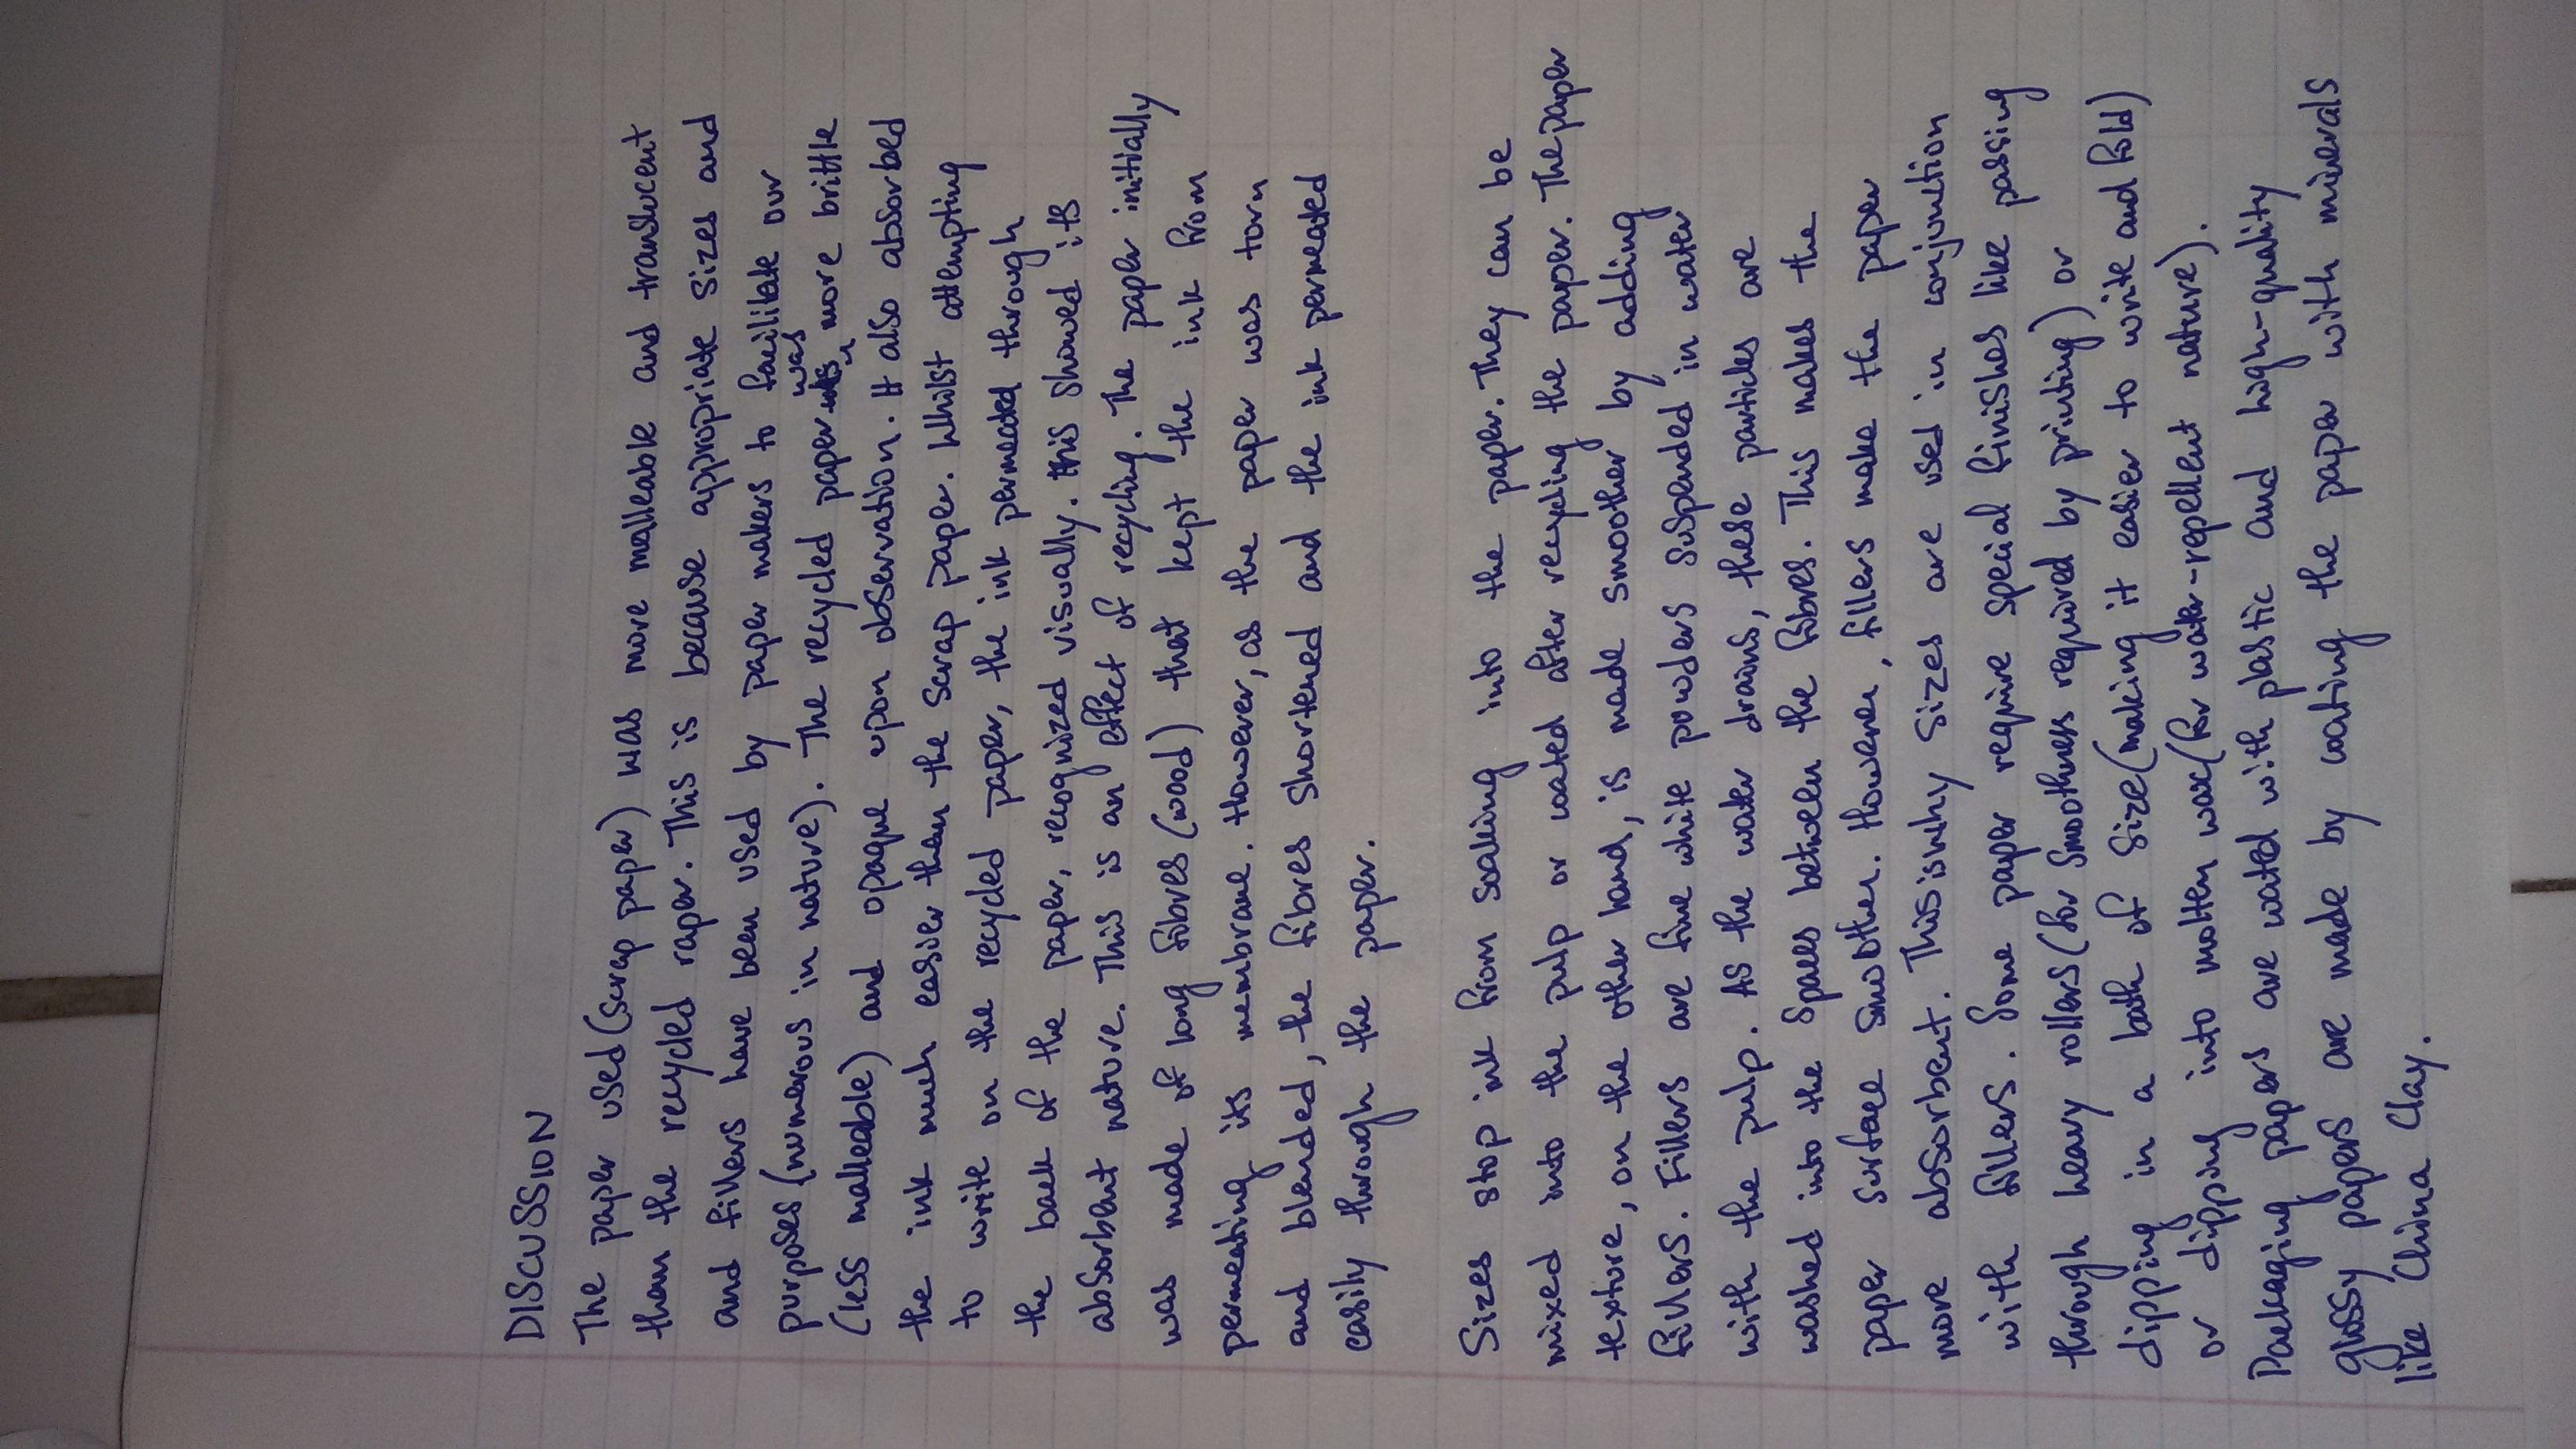 DISCUSSION
The paper used (scrap paper) was more malleable and translucent
than the recycled raper. This is because appropriate sizes and
and fillers have been used by paper makers to facilitate our
purposes (numerous in nature). The recycled paper was more brittle
(less malleable) and opaque upon observation. It also absorbed
the ink much easier than the scrap paper. Whilst attempting
to write on the recycled paper, the ink permeated through
the back of the paper, recognized visually. this showed its
absorbent nature. This is an effect of recycling. The paper initially
was made of long fibres (wood) that kept the ink from
permeating its membrane. However, as the paper was torn
and blended, the fibres shortened and the ink permeated
easily through the paper.
Sizes stop ink from soaking into the paper. They can be
mixed into the pulp or coated after recycling the paper. The paper
texture, on the other hand, is made smoother by adding
fillers. Fillers are fine white powders suspended in water
with the pulp. As the water drains, these particles are
washed into the spaces between the fibres. This makes the
paper surface smoother. However, fillers make the paper
more absorbent. This is why sizes are used in conjunction
with fillers. Some paper require special finishes like passing
through heavy rollers (for smoothness required by printing) or
dipping in a bath of size (making it easier to write and fold)
or dipping into molten wax (for water-repellent nature).
Packaging papers are coated with plastic and high-quality
glossy papers are made by coating the paper with minerals
like China Clay.